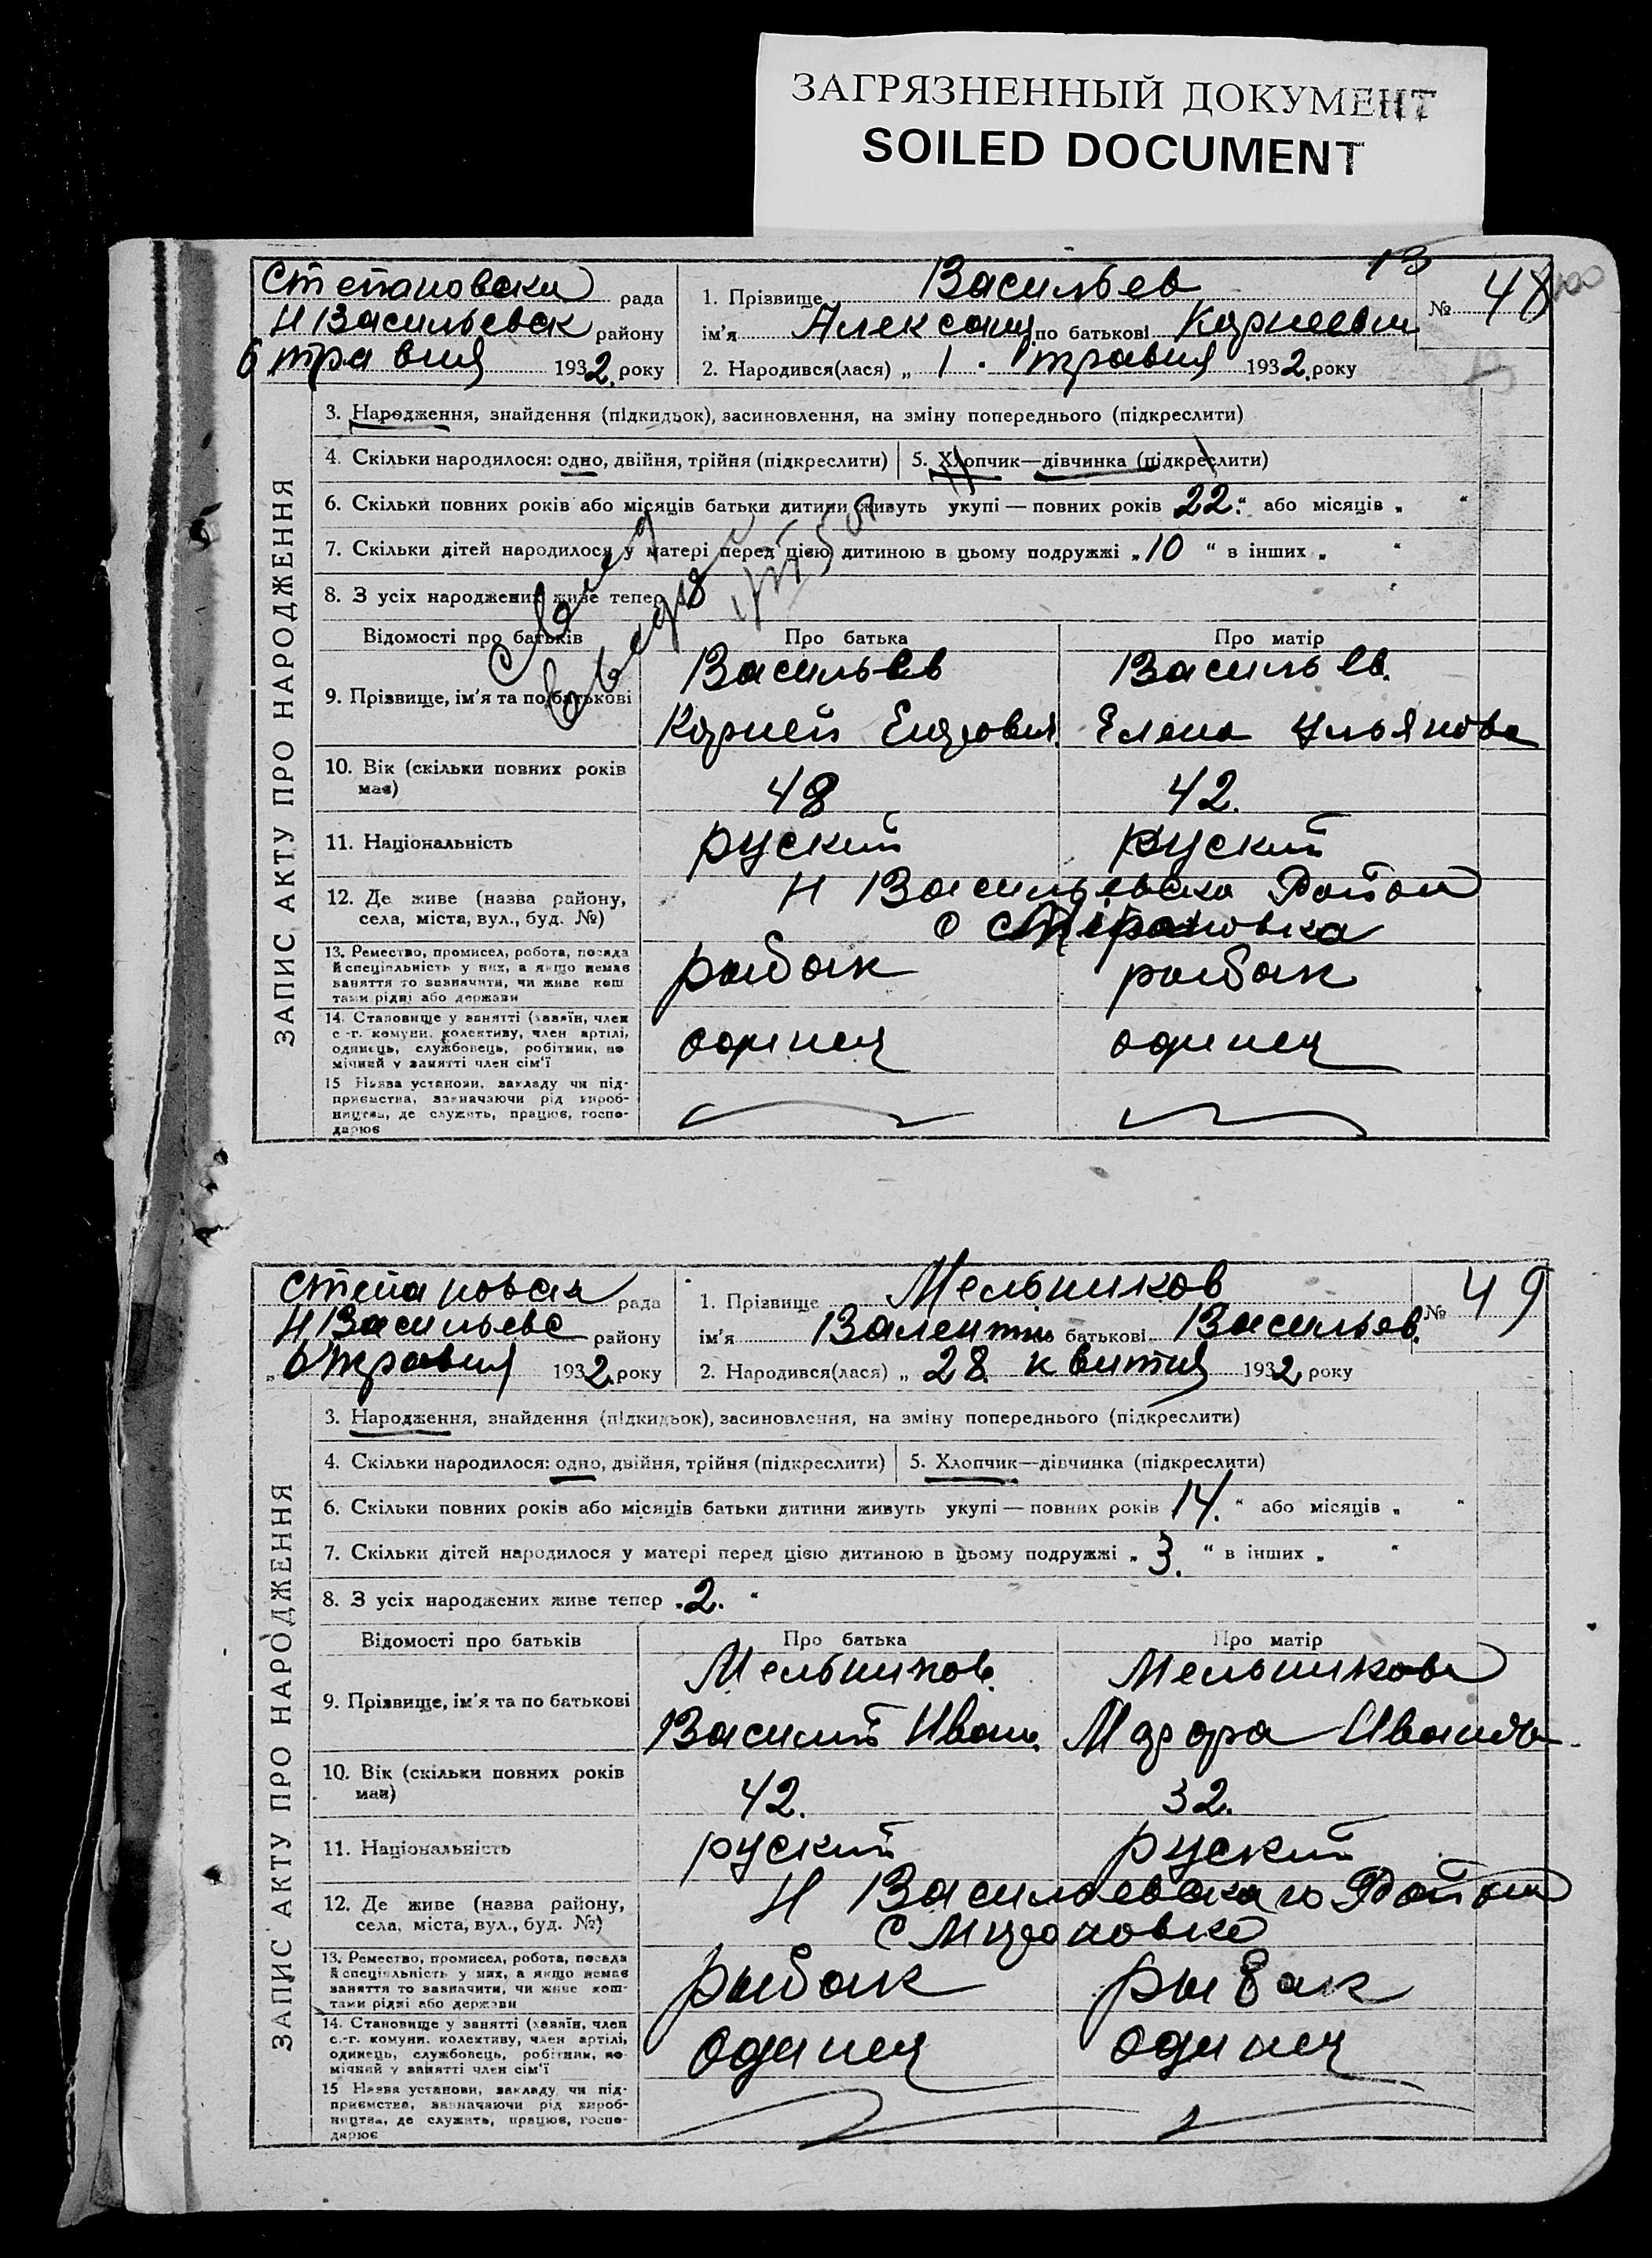 ЗАГРЯЗНЕННЫЙ ДОКУМЕНТ
SOILED DOCUMENT
13
Степановски рада
Н Васильевск району
6 травня 1932 року
1. Прізвище Васильев
ім'я Александ по батькові Карнеевич
2. Народився(лася) „ 1 . травня 1932 року
№ 48
ЗАПИС АКТУ ПРО НАРОДЖЕННЯ
3. Народження, знайдення (підкидьок), засиновлення, на зміну попереднього (підкреслити)
4. Скільки народилося: одно, двійня, трійня (підкреслити) 5. Хлопчик—дівчинка (підкреслити)
6. Скільки повних років або місяців батьки дитини живуть укупі — повних років 22 “ або місяців „ “
7. Скільки дітей народилося у матері перед цією дитиною в цьому подружжі „ 10 “ в інших „ “
8. З усіх народжених живе тепер 8
Відомості про батьків Про батька Про матір
9. Прізвище, ім'я та по батькові
Васильев Васильев.
Карней Елена Ульянова
10. Вік (скільки повних років має) 48 42.
11. Національність руский руский
12. Де живе (назва району, села, міста, вул., буд. №)
Н Васильевска Район
13. Ремество, промисел, робота, посада й спеціяльність у них, а якщо немає заняття то зазначити, чи живе коштами рідні або держави
рыбак рыбак
14. Становище у занятті (хазяїн, член с.-г. комуни, колективу, член артілі, одинець, службовець, робітник, помічний у занятті член сім'ї
одинец одинец
15 Назва установи, закладу чи підприємства, зазначаючи рід виробництва, де служить, працює, господарює
Степановская рада
Н Васильевс району
„ 6 травня 1932 року
1. Прізвище Мельников
ім'я Валентин батькові Васильев.
2. Народився(лася) „ 28. квитня 1932 року
№ 49
ЗАПИС АКТУ ПРО НАРОДЖЕННЯ
3. Народження, знайдення (підкидьок), засиновлення, на зміну попереднього (підкреслити)
4. Скільки народилося: одно, двійня, трійня (підкреслити) 5. Хлопчик—дівчинка (підкреслити)
6. Скільки повних років або місяців батьки дитини живуть укупі — повних років 14. “ або місяців „ “
7. Скільки дітей народилося у матері перед цією дитиною в цьому подружжі „ 3. “ в інших „ “
8. З усіх народжених живе тепер „ 2. “
Відомості про батьків Про батька Про матір
9. Прізвище, ім'я та по батькові
Мельников. Мельникова
Василий Иван. Иванов
10. Вік (скільки повних років має) 42. 32.
11. Національність руский руский
12. Де живе (назва району, села, міста, вул., буд. №)
Н Васильевскаго Район
13. Ремество, промисел, робота, посада й спеціяльність у них, а якщо немає заняття то зазначити, чи живе коштами рідні або держави
рыбак рыбак
14. Становище у занятті (хазяїн, член с.-г. комуни, колективу, член артілі, одинець, службовець, робітник, помічний у занятті член сім'ї
одинец одинец
15 Назва установи, закладу чи підприємства, зазначаючи рід виробництва, де служить, працює, господарює